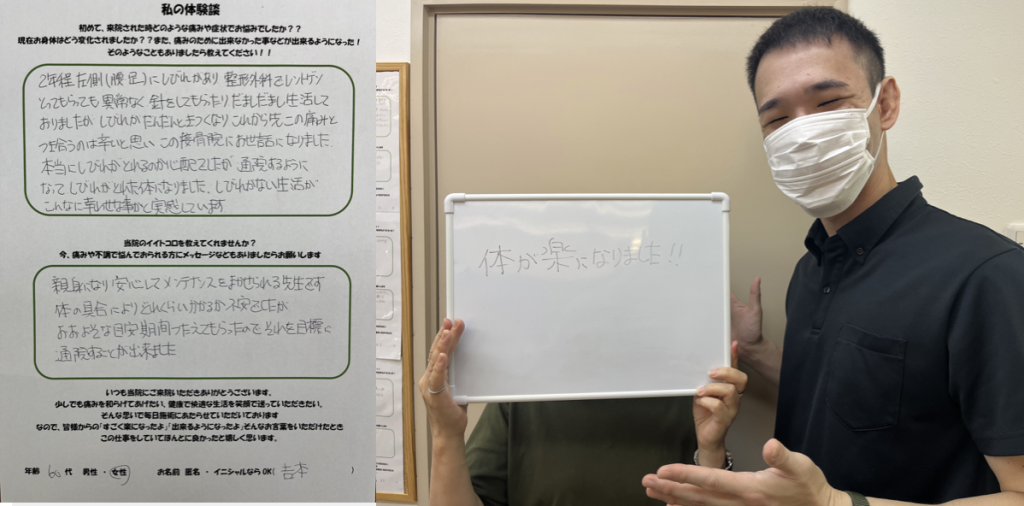 私の体験談
初めて、来院された時どのような痛みや症状でお悩みでしたか？？
現在お身体はどう変化されましたか？？また、痛みのために出来なかった事などが出来るようになった！
そのようなこともありましたら教えてください！！
2年程左側(腰足)にしびれがあり 整形外科でレントゲン
とってもらっても異常なく 針をしてもらったりだましだまし生活して
おりましたが しびれがだんだんときつくなり これから先この痛みと
つき合うのは辛いと思い この接骨院にお世話になりました。
本当にしびれがとれるのか心配でしたが 通院するように
なって しびれがとれた体になりました、しびれがない生活が
こんなに幸せな事かと実感しています
当院のイイトコロを教えてくれませんか？
今、痛みや不調で悩んでおられる方にメッセージなどもありましたらお願いします
親身になり安心してメンテナンスをまかせられる先生です
体の具合によりどれくらいかかるか不安でしたが
おおよそな目安期間つたえてもらったので それを目標に
通院することが出来ました
いつも当院にご来院いただきありがとうございます。
少しでも痛みを和らげてあげたい、健康で快適な生活を笑顔で送っていただきたい、
そんな思いで毎日施術にあたらせていただいております
なので、皆様からの「すごく楽になったよ」「出来るようになったよ」そんなお言葉をいただけたとき
この仕事をしていてほんとに良かったと嬉しく思います。
年齢 60 代 男性 ・ 女性 お名前 匿名 ・ イニシャルならOK( 吉本 )
体が楽になりました!!